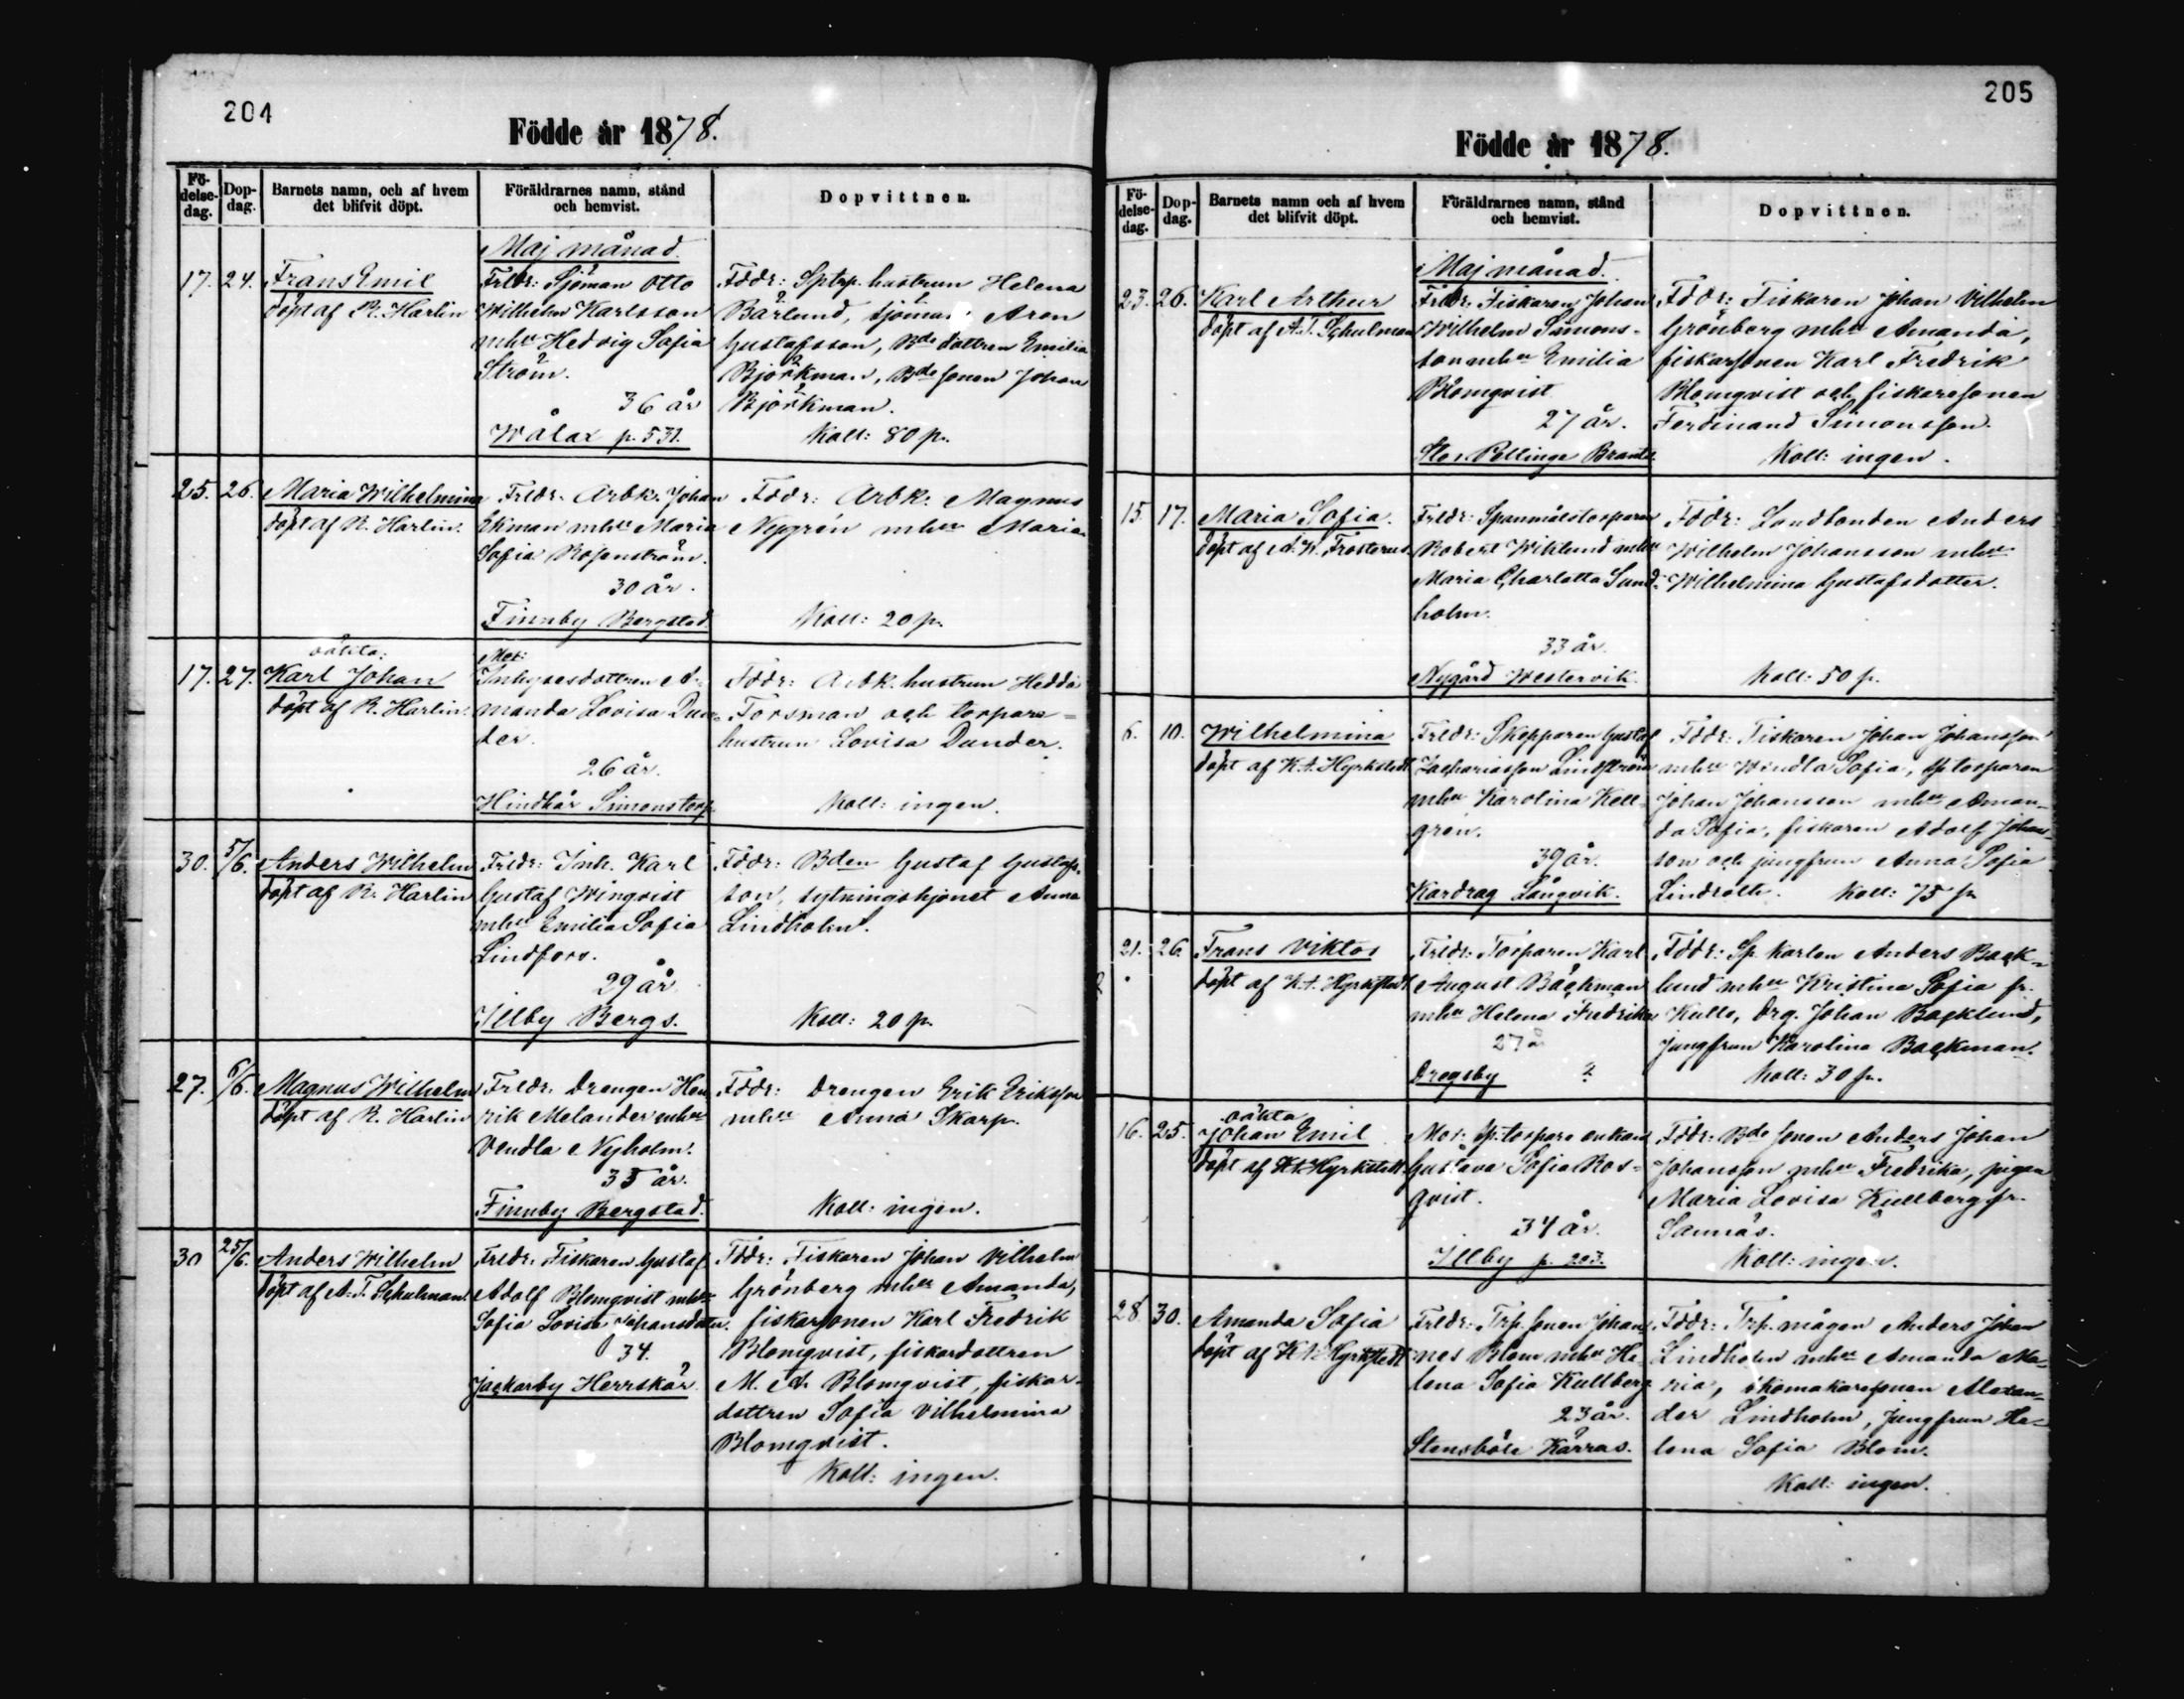 204
Födde år 1878.
Fö-
delse-
dag.
Dop-
dag.
Barnets namn, och af hvem
det blifvit döpt.
Föräldrarnes namn, stånd
och hemvist.
Dopvittnen.
Maj månad.
17. 24. Frans Emil
döpt af R. Harlin
Frldr: Sjöman Otto
Wilhelm Karlsson
mhu Hedvig Sofia
Ström.
36 år
Wålax p. 531.
Fddr: Sptrp. hustrun Helena
Bärlund, sjöman Aron
Gustafsson, Bde dottren Emilia
Björkman, Bde sonen Johan
Björkman.
Koll: 80 p.
25. 26. Maria Wilhelmina
döpt af R. Harlin.
Frldr. Arbk. Johan
Ekman mhu Maria
Sofia Rosenström.
30 år.
Finnby Bergstad.
Fddr: Arbk. Magnus
Nygrén mhu Maria
Koll: 20 p.
oäkta:
17. 27. Karl Johan
döpt af R. Harlin.
Mor:
Inhysesdottren A-
manda Lovisa Dun-
der.
26 år.
Hindhår Simonstorp.
Fddr: Arbk. hustrun Hedda
Forsman och torpare=
hustrun Lovisa Dunder.
Koll: ingen.
30. 5/6. Anders Wilhelm
döpt af R. Harlin
Frldr: Inh. Karl
Gustaf Winqvist
mhu Emilia Sofia
Lindfors.
29 år
Illby Bergs.
Fddr: Bden Gustaf Gustafs-
son, sytningshjonet Anna
Lindholm.
Koll: 20 p.
27. 6/6. Magnus Wilhelm
döpt af R. Harlin
Frldr. Drengen Hen
rik Melander mhu
Vendla Nyholm.
35 år.
Finnby Bergstad.
Fddr: Drengen Erik Eriksson
mhu Anna Skarp.
Koll: ingen.
30 25/6. Anders Wilhelm
döpt af A. T. Schulman.
Frldr. Fiskaren Gustaf
Adolf Blomqvist mhu
Sofia Lovisa Johansdotter.
34.
Jackarby Herrskär.
Fddr: Fiskaren Johan Vilhelm
Grönberg mhu Amanda,
fiskarsonen Karl Fredrik
Blomqvist, fiskardottren
M. A. Blomqvist, fiskar-
dottren Sofia Vilhelmina
Blomqvist.
Koll: ingen.
205
Födde år 1878.
Fö-
delse-
dag.
Dop-
dag.
Barnets namn och af hvem
det blifvit döpt.
Föräldrarnes namn, stånd
och hemvist.
Dopvittnen.
Maj månad.
23. 26. Karl Arthur
döpt af A. T. Schulman
Frldr: Fiskaren Johan
Wilhelm Simons-
son mhu Emilia
Blomqvist
27 år.
Stor Pellinge
Fddr: Fiskaren Johan Vilhelm
Grönberg mhu Amanda,
fiskarsonen Karl Fredrik
Blomqvist och fiskaresonen
Ferdinand Simonsson.
Koll: ingen.
15. 17. Maria Sofia.
döpt af A. W. Frosterus.
Frldr: Spanmålstorparen
Robert Wiklund mhu
Maria Charlotta Sund-
holm.
33 år.
Nygård Westervik.
Fddr: Landbonden Anders
Wilhelm Johansson mhu
Wilhelmina Gustafsdotter.
Koll: 50 p.
6. 10. Wilhelmina
döpt af K. A. Hyrkstedt
Frldr: Skepparen Gustaf
Zachariasson Lindström
mhu Karolina Kell-
gren.
39 år.
Kardrag Långvik.
Fddr: Fiskaren Johan Johansson
mhu Wendla Sofia, sptorparen
Johan Johansson mhu Aman-
da Sofia, fiskaren Adolf Johans-
son och jungfrun Anna Sofia
Lindroth. Koll: 75 p.
21. 26. Frans Viktor
döpt af K. A. Hyrkstedt.
Frldr: Torparen Karl
August Bäckman
mhu Helena Fredrika
27 å
Dregsby 2
Fddr: Sp. karlen Anders Back-
lund mhu Kristina Sofia fr.
Kullo, drg. Johan Backlund,
jungfrun Karolina Backman.
Koll: 30 p.
oäkta
16. 25. Johan Emil
döpt af K. A. Hyrkstedt.
Mor: Sp: torpare enkan
Gustava Sofia Ros-
qvist.
34 år.
Illby p. 203.
Fddr: Bde sonen Anders Johan
Johansson mhu Fredrika, pigan
Maria Lovisa Kullberg fr.
Sannäs.
Koll: ingen.
28. 30. Amanda Sofia
döpt af K. A. Hyrkstedt
Frldr: Trp. sonen Johan-
nes Blom mhu He-
lena Sofia Kullberg
23 år.
Stensböle Kärras.
Fddr: Trp. mågen Anders Johan
Lindholm mhu Amanda Ma-
ria, skomakaresonen Alexan-
der Lindholm, jungfrun He-
lena Sofia Blom.
Koll: ingen.